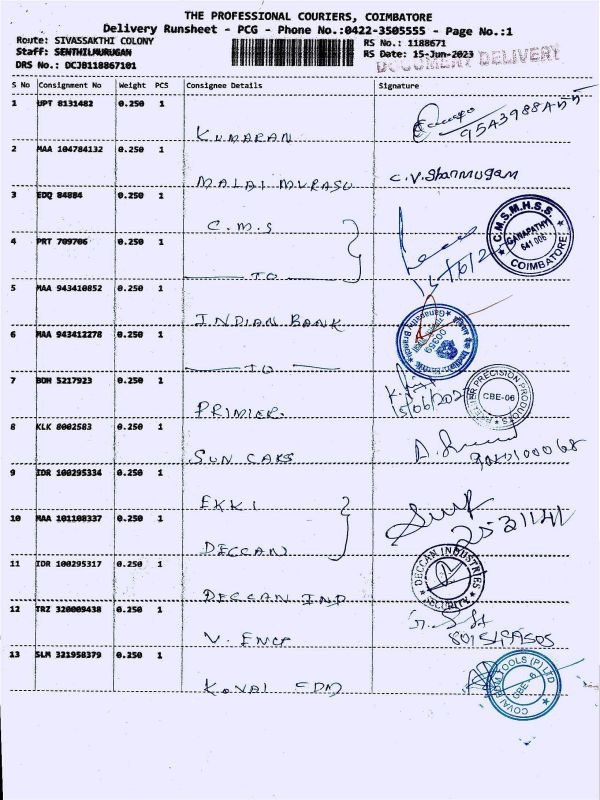 THE PROFESSIONAL COURIERS, COIMBATORE
Delivery Runsheet - PCG - Phone No.:0422-3505555 - Page No.:1
Route: SIVASSAKTHI COLONY
RS No.: 1188671
Staff: SENTHILMURUGAN
RS Date: 15-Jun-2023
DOCUMENT DELIVERY
DRS No.: DCJB118867101
S No Consignment No Weight PCS Consignee Details Signature
1 UPT 8131482 0.250 1
KUMARAN
2 MAA 104784132 0.250 1
MALAI MURASU C.V. Shanmugam
3 EDQ 84884 0.250 1
C.M.S
C.M.S.M.H.S.S. GANAPATHY 641 006 COIMBATORE
4 PRT 709706 0.250 1
TO
5 MAA 943410852 0.250 1
INDIAN BANK
00359
6 MAA 943412278 0.250 1
TO
7 BOM 5217923 0.250 1
PRIMIER
15/06/202
PRECISION PRODUCTS CBE-06
8 KLK 8002583 0.250 1
SUN CARS
9 IDR 100295334 0.250 1
EKKI
10 MAA 101108337 0.250 1
DECCAN
2531141
11 IDR 100295317 0.250 1
DECCAN IND
DECCAN INDUSTRIES SECURITY
12 TRZ 320009438 0.250 1
V. ENGP
13 SLM 321958379 0.250 1
KOVAI EDM
COVAI EDM TOOLS (P) LTD CBE-6